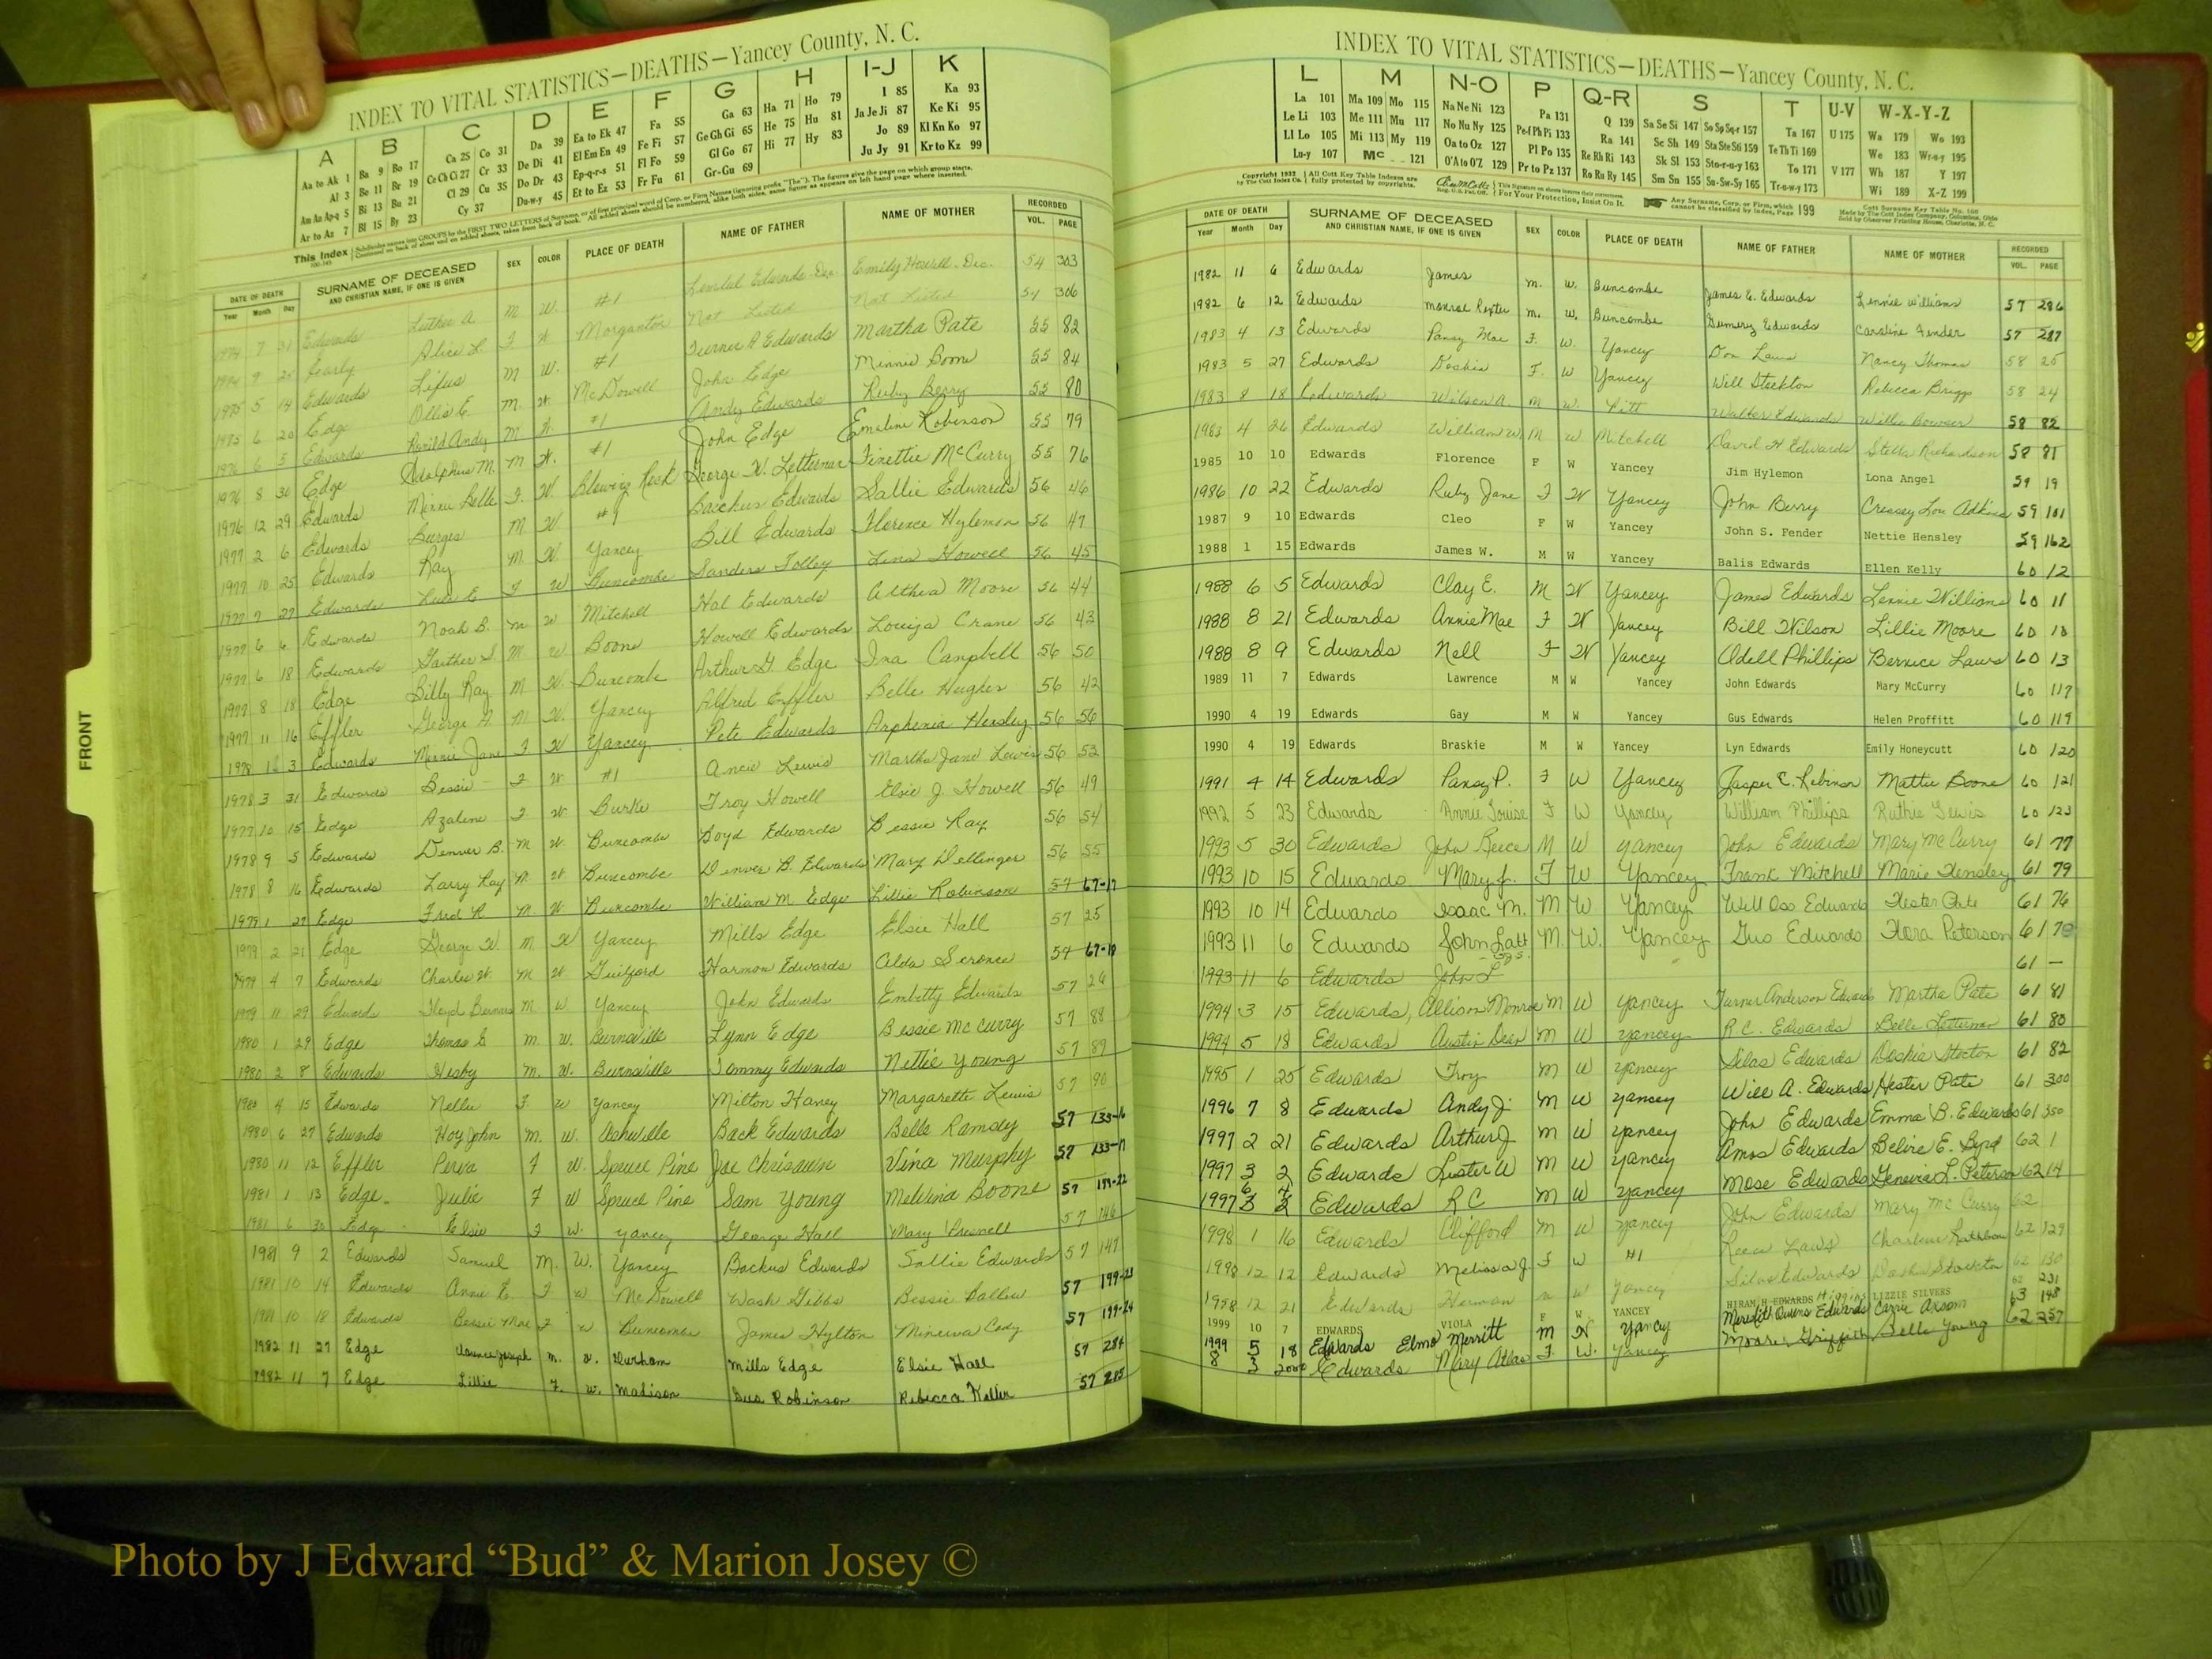 INDEX TO VITAL STATISTICS—DEATHS—Yancey County, N. C.
A B C D E F G H I-J K
Aa to Ak 1 Ba 9 Bo 17 Ca 25 Co 31 Da 39 Ea to Ek 47 Fa 55 Ga 63 Ha 71 Ho 79 I 85 Ka 93
Al 3 Be 11 Br 19 Ce Ch Ci 27 Cr 33 De Di 41 El Em En 49 Fe Fi 57 Ge Gh Gi 65 He 75 Hu 81 Ja Je Ji 87 Ke Ki 95
Am An Ap-q 5 Bi 13 Bu 21 Cl 29 Cu 35 Do Dr 43 Ep-q-r-s 51 Fl Fo 59 Gl Go 67 Hi 77 Hy 83 Jo 89 Kl Kn Ko 97
Ar to Az 7 Bl 15 By 23 Cy 37 Du-w-y 45 Et to Ez 53 Fr Fu 61 Gr-Gu 69 Ju Jy 91 Kr to Kz 99
This Index
DATE OF DEATH SURNAME OF DECEASED AND CHRISTIAN NAME, IF ONE IS GIVEN SEX COLOR PLACE OF DEATH NAME OF FATHER NAME OF MOTHER RECORDED
Year Month Day VOL. PAGE
1974 7 31 Edwards Luther A M W. #1 Edwards-Dec. Emily Howell-Dec. 54 303
Alice L. F W Morganton Not Listed Not Listed 54 306
1975 5 14 Edwards Lifus M W. #1 Turner A Edwards Martha Pate 55 82
1975 6 20 Edge Ollis E. M. W. McDowell John Edge Minnie Boone 55 84
1976 6 5 Edwards Andy M W. #1 Andy Edwards Ruby Berry 55 80
1976 8 30 Edge Adolphus M. M W. #1 John Edge Emaline Robinson 55 79
1976 12 29 Edwards Minnie Belle F. W. Blowing Rock George W. Letterman Finettie McCurry 55 76
1977 2 6 Edwards Burges M W #1 Bacchus Edwards Sallie Edwards 56 46
1977 10 25 Edwards Ray M W Yancey Bill Edwards Florence Hylemon 56 47
1977 7 27 Edwards Lula E F W Buncombe Sanders Tolley Lina Howell 56 45
1977 6 6 Edwards Noah B. M W Mitchell Hal Edwards Althea Moore 56 44
1977 6 18 Edwards Gaither S. M W Boone Howell Edwards Louiza Crane 56 43
1977 8 18 Edge Billy Ray M W. Buncombe Arthur G. Edge Ina Campbell 56 50
1977 11 16 Effler George A. M W. Yancey Alfred Effler Belle Hughes 56 42
1978 3 Edwards Minnie Jane F W Yancey Pete Edwards Arphenia Hensley 56 56
1978 3 31 Edwards Bessie F W. #1 Ance Lewis Martha Jane Lewis 56 53
1977 10 15 Edge Azalene F W. Burke Troy Howell Elsie J. Howell 56 49
1978 9 5 Edwards Denver B. M W. Buncombe Boyd Edwards Bessie Ray 56 54
1978 8 16 Edwards Larry Ray M W. Buncombe Denver B. Edwards Mary Dellinger 56 55
1979 1 27 Edge Fred R M W. Buncombe William M. Edge Lillie Robinson 57 67-17
1979 2 21 Edge George W. M. W Yancey Mills Edge Elsie Hall 57 25
1979 4 7 Edwards Charles W. M W. Guilford Harmon Edwards Alda Scronce 57 67-18
1979 11 29 Edwards Floyd M. W. Yancey John Edwards Embetty Edwards 57 26
1980 1 29 Edge Thomas G M. W. Burnsville Lynn Edge Bessie McCurry 57 88
1980 2 8 Edwards Hesby M. W. Burnsville Tommy Edwards Nettie Young 57 89
1980 4 15 Edwards Nellie F. W Yancey Milton Haney Margarette Lewis 57 90
1980 6 27 Edwards Hoy John M. W. Asheville Back Edwards Belle Ramsey 57 133-16
1980 11 12 Effler Perva F W. Spruce Pine Joe Chrisawn Vina Murphy 57 133-17
1981 1 13 Edge Julie F W Spruce Pine Sam Young Melvina Boone 57 199-22
1981 6 30 Edge Elsie F W. Yancey George Hall Mary Presnell 57 146
1981 9 2 Edwards Samuel M. W. Yancey Backus Edwards Sallie Edwards 57 147
1981 10 14 Edwards Annie E. F W McDowell Wash Gibbs Bessie Ballew 57 199-23
1981 10 18 Edwards Bessie Mae F W Buncombe James Hylton Minerva Cody 57 199-24
1982 11 27 Edge Clarence Joseph M. W. Durham Mills Edge Elsie Hall 57 284
1982 11 7 Edge Lillie F. W. Madison Gus Robinson Rebecca Keller 57 285
FRONT
INDEX TO VITAL STATISTICS—DEATHS—Yancey County, N. C.
L M N-O P Q-R S T U-V W-X-Y-Z
La 101 Ma 109 Mo 115 Na Ne Ni 123 Pa 131 Q 139 Sa Se Si 147 So Sp Sq-r 157 Ta 167 U 175 Wa 179 Wo 193
Le Li 103 Me 111 Mu 117 No Nu Ny 125 Pe-f Ph Pi 133 Ra 141 Sc Sh 149 Sta Ste Sti 159 Te Th Ti 169 We 183 Wr-u-y 195
Ll Lo 105 Mi 113 My 119 Oa to Oz 127 Pl Po 135 Re Rh Ri 143 Sk Sl 153 Sto-r-u-y 163 To 171 V 177 Wh 187 Y 197
Lu-y 107 Mc 121 O'A to O'Z 129 Pr to Pz 137 Ro Ru Ry 145 Sm Sn 155 Su-Sw-Sy 165 Tr-u-w-y 173 Wi 189 X-Z 199
Copyright 1932 by The Cott Index Co. All Cott Key Table Indexes are fully protected by copyrights. For Your Protection, Insist On It. Any Surname, Corp. or Firm, which cannot be classified by index, Page 199
DATE OF DEATH SURNAME OF DECEASED AND CHRISTIAN NAME, IF ONE IS GIVEN SEX COLOR PLACE OF DEATH NAME OF FATHER NAME OF MOTHER RECORDED
Year Month Day VOL. PAGE
1982 11 6 Edwards James M. W. Buncombe James E. Edwards Lennie Williams 57 286
1982 6 12 Edwards Monroe Rexter M. W. Buncombe Edwards Caroline Fender 57 287
1983 4 13 Edwards Pansy Mae F. W. Yancey Don Laws Nancy Thomas 58 25
1983 5 27 Edwards Doskia F. W Yancey Will Stockton Rebecca Briggs 58 24
1983 8 18 Edwards Wilson A M W. Pitt Walter Edwards Willie Bowser 58 82
1983 4 26 Edwards William W. M W Mitchell David H Edwards Stella Richardson 58 81
1985 10 10 Edwards Florence F W Yancey Jim Hylemon Lona Angel 59 19
1986 10 22 Edwards Ruby Jane F W Yancey John Berry Cressey Lou Adkins 59 101
1987 9 10 Edwards Cleo F W Yancey John S. Fender Nettie Hensley 59 162
1988 1 15 Edwards James W. M W Yancey Balis Edwards Ellen Kelly 60 12
1988 6 5 Edwards Clay E. M W Yancey James Edwards Lennie Williams 60 11
1988 8 21 Edwards Annie Mae F W Yancey Bill Wilson Lillie Moore 60 10
1988 8 9 Edwards Nell F W Yancey Odell Phillips Bernice Laws 60 13
1989 11 7 Edwards Lawrence M W Yancey John Edwards Mary McCurry 60 117
1990 4 19 Edwards Gay M W Yancey Gus Edwards Helen Proffitt 60 119
1990 4 19 Edwards Braskie M W Yancey Lyn Edwards Emily Honeycutt 60 120
1991 4 14 Edwards Pansy P. F W Yancey Jasper C. Robinson Mattie Boone 60 121
1992 5 23 Edwards Annie Louise F W Yancey William Phillips Ruthie Lewis 60 123
1993 5 30 Edwards John Reece M W Yancey John Edwards Mary McCurry 61 77
1993 10 15 Edwards Mary J. F W Yancey Frank Mitchell Marie Hensley 61 79
1993 10 14 Edwards Isaac M. M W Yancey Will Oss Edwards Hester Pate 61 76
1993 11 6 Edwards John Latt M. W. Yancey Gus Edwards Flora Peterson 61 78
1993 11 6 Edwards John L 61 —
1994 3 15 Edwards, Allison Monroe M W Yancey Turner Anderson Edwards Martha Pate 61 81
1994 5 18 Edwards Austin Dean M W Yancey R.C. Edwards Belle Letterman 61 80
1995 1 25 Edwards Troy M W Yancey Silas Edwards Doskia Stocton 61 82
1996 7 8 Edwards Andy J. M W Yancey Will A. Edwards Hester Pate 61 300
1997 2 21 Edwards Arthur J M W Yancey John Edwards Emma B. Edwards 61 350
1997 3 2 Edwards Lester W M W Yancey Amos Edwards Belvie E. Byrd 62 1
1997 Edwards R C M W Yancey Mose Edwards Geneiva L. Peterson 62 14
1998 1 16 Edwards Clifford M W Yancey John Edwards Mary McCurry 62
1998 12 12 Edwards Melissa J. F W #1 Reece Laws Charlene Rathbone 62 129
1998 12 21 Edwards Herman M W Yancey Silas Edwards Doskie Stockton 62 130
1999 10 7 EDWARDS VIOLA F W YANCEY HIRAM H EDWARDS Higgins LIZZIE SILVERS 62 231
1999 5 18 Edwards Elmo Merritt M W Yancey Meredith Owens Edwards Carrie Axsom 63 195
8 3 2000 Edwards Mary Atlas F. W. Yancey Griffith Belle Young 62 257
Photo by J Edward “Bud” & Marion Josey ©